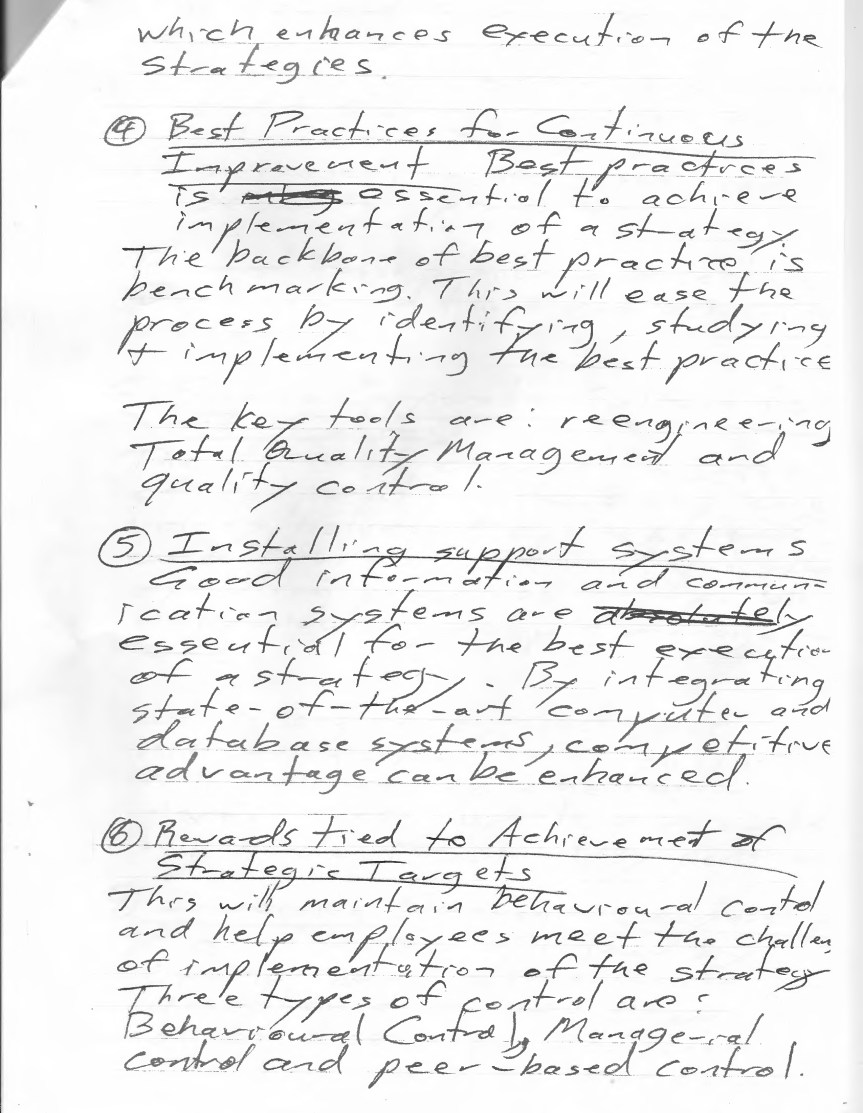 which enhances execution of the
strategies.
④ Best Practices for Continuous
Improvement Best practices
is essential to achieve
implementation of a strategy
The backbone of best practice is
benchmarking. This will ease the
process by identifying, studying
+ implementing the best practice
The key tools are: reengineering
Total Quality Management and
quality control.
⑤ Installing support systems
Good information and commun-
ication systems are absolutely
essential for the best execution
of a strategy. By integrating
state-of-the-art computer and
database systems, competitive
advantage can be enhanced.
⑥ Rewards tied to Achievemet of
Strategic Targets
This will maintain behavioural contol
and help employees meet the challen
of implementation of the strategy
Three types of control are:
Behavioural Control, Managerial
control and peer-based control.